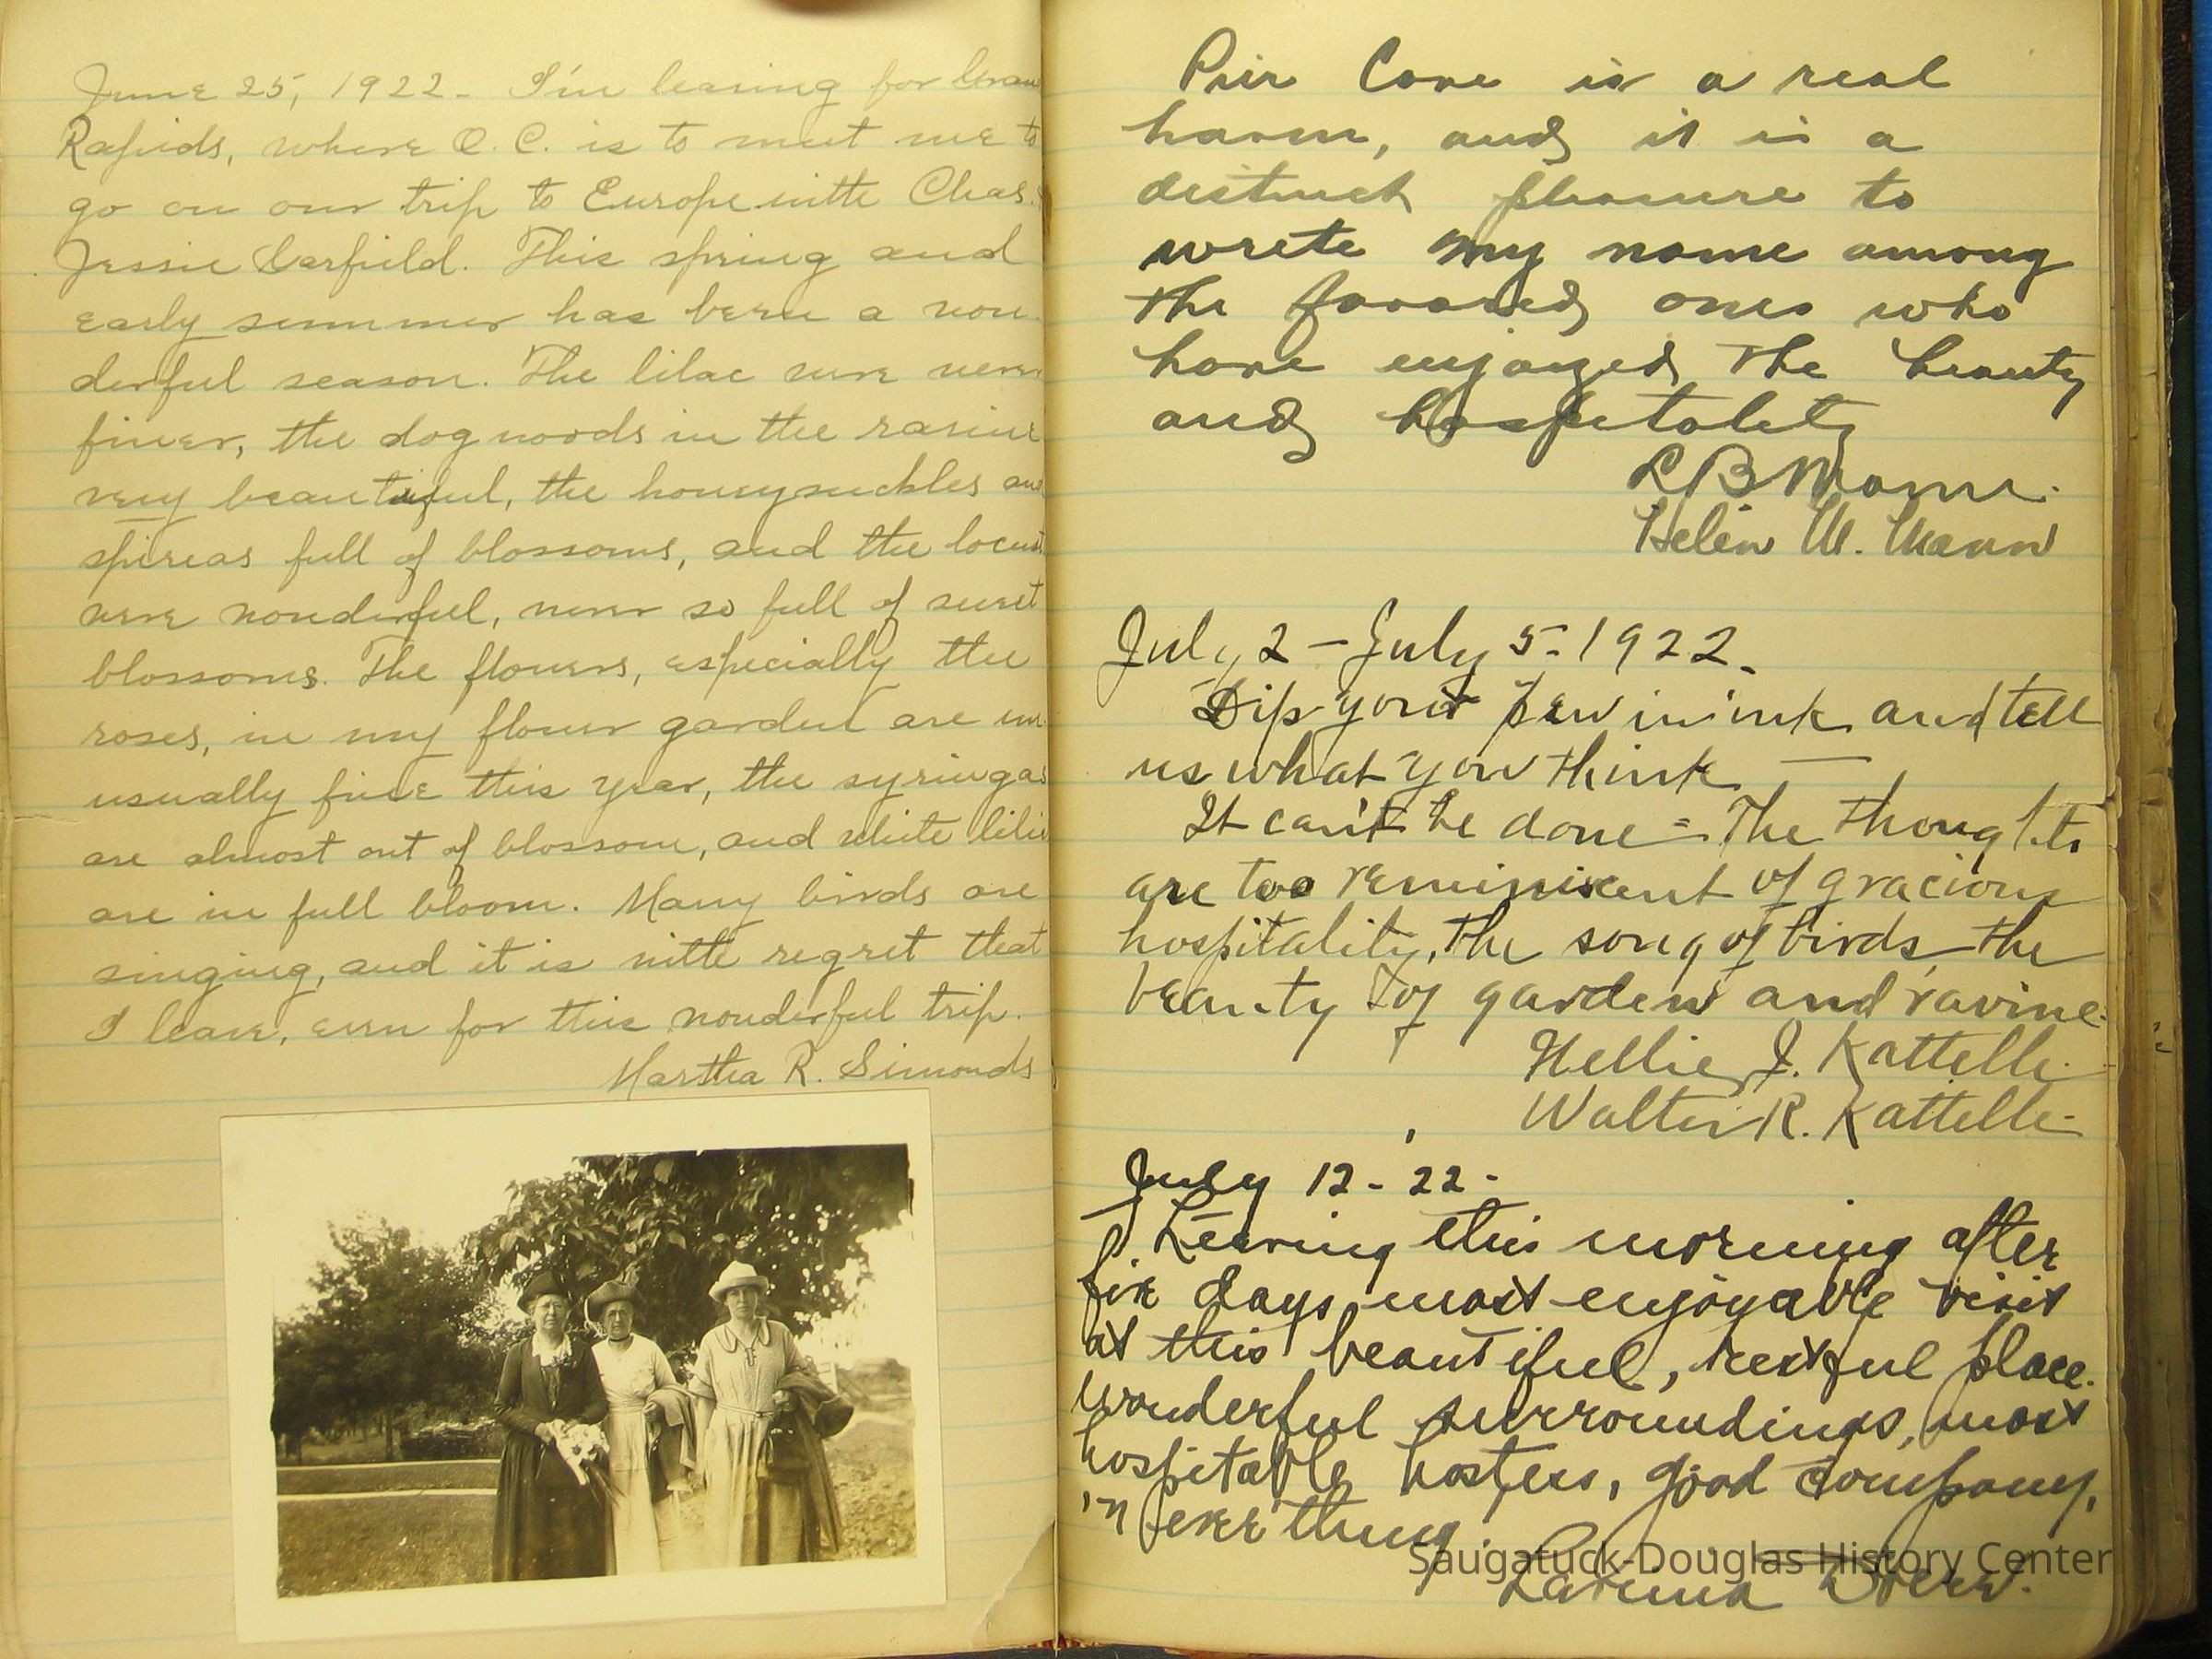 June 25, 1922 - I'm leaving for Gran
Rapids, where O. C. is to meet me to
go on our trip to Europe with Chas.
Jessie Garfield. This spring and
early summer has been a won-
derful season. The lilac were never
finer, the dogwoods in the ravine
very beautiful, the honeysuckles and
spireas full of blossoms, and the locust
were wonderful, never so full of sweet
blossoms. The flowers, especially the
roses, in my flower garden are un
usually fine this year, the syringas
are almost out of blossom, and white lilies
are in full bloom. Many birds are
singing, and it is with regret that
I leave, even for this wonderful trip.
Martha R. Simonds
Pier Cove is a real
haven, and it is a
distinct pleasure to
write my name among
the favored ones who
have enjoyed the beauty
and hospitality
R B Mann.
Helen M. Mann
July 2 - July 5 - 1922 -
Dip your pen in ink and tell
us what you think —
It can't be done = The thoughts
are too reminiscent of gracious
hospitality, the song of birds, the
beauty of garden and ravine -
Nellie J. Kattelle -
Walter R. Kattelle -
July 12 - 22 -
Leaving this morning after
six days most enjoyable visit
at this beautiful, restful place.
wonderful surroundings, most
hospitable hostess, good company,
in every thing.
Saugatuck-Douglas History Center